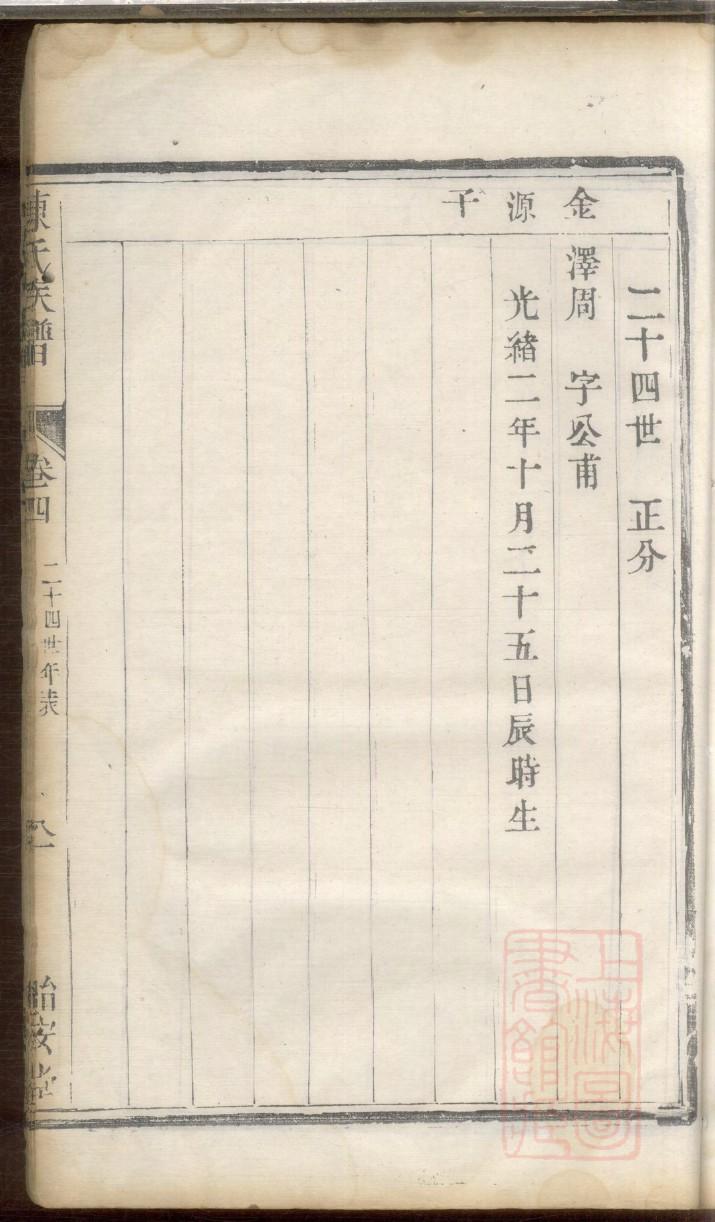 金源子
二十四世 正分
澤周 字公甫
光緒二年十月二十五日辰時生
陳氏族譜
卷四
二十四世年表
怡安堂
上海圖
書館藏